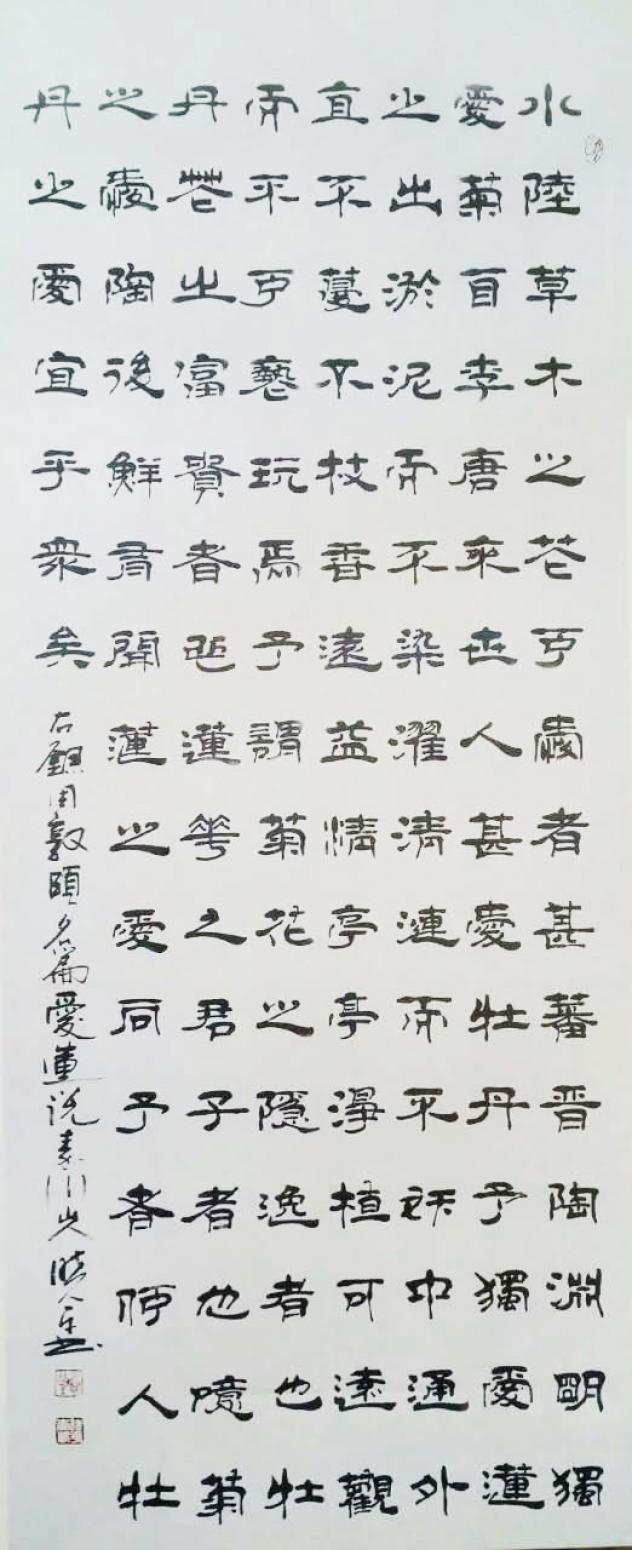 水陸草木之芲可愛者甚蕃晋陶渊明獨
愛菊自李唐來世人甚愛牡丹予獨愛蓮
之出淤泥而不染濯清漣而不妖中通外
直不蔓不枝香遠益清亭亭淨植可遠觀
而不可褻玩焉予謂菊花之隱逸者也牡
丹芲之富貴者也蓮華之君子者也噫菊
之愛陶後鮮有聞蓮之愛同予者何人牡
丹之愛宜乎衆矣
右錄周敦頤名篇愛蓮説